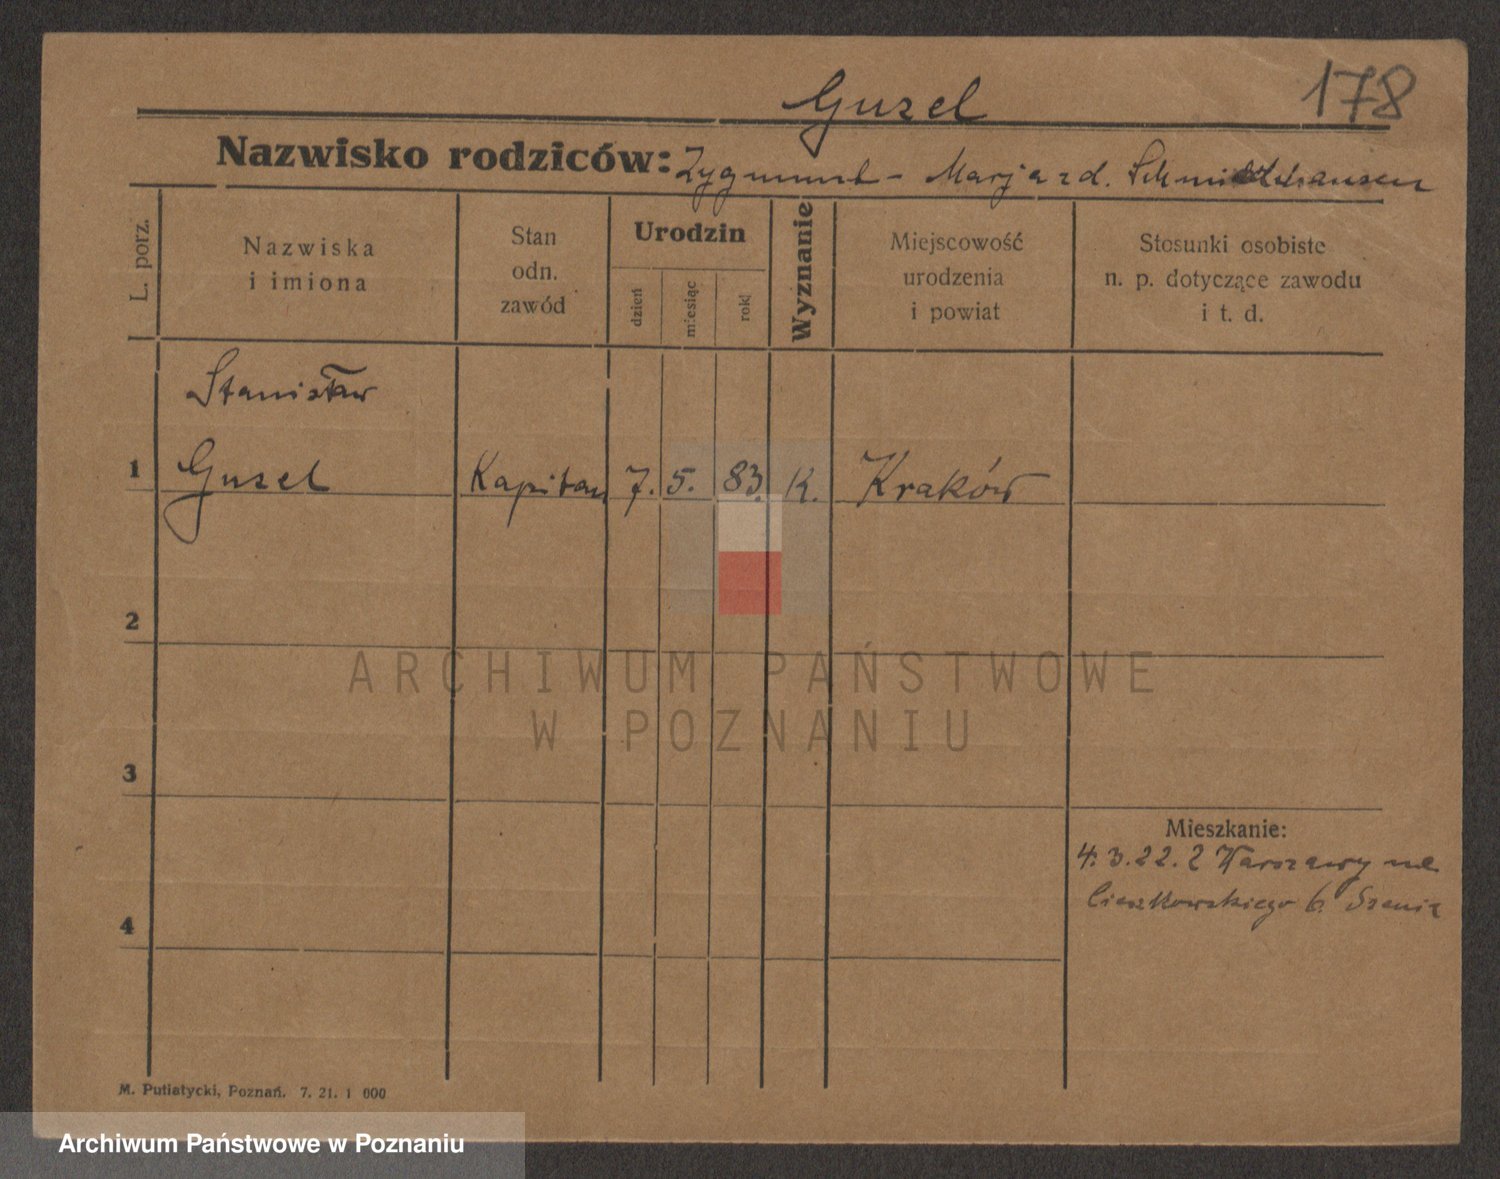 Guzel
178
Nazwisko rodziców: Zygmunt - Marja z d.
L. porz.
Nazwiska
i imiona
Stan
odn.
zawód
Urodzin
dzień
miesiąc
rok
Wyznanie
Miejscowość
urodzenia
i powiat
Stosunki osobiste
n. p. dotyczące zawodu
i t. d.
Stanisław
1 Guzel Kapitan 7. 5. 83. K. Kraków
2
3
4
Mieszkanie:
4.3.22. z Warszawy
Cieszkowskiego 6.
ARCHIWUM PAŃSTWOWE
W POZNANIU
M. Putiatycki, Poznań. 7. 21. 1 000
Archiwum Państwowe w Poznaniu